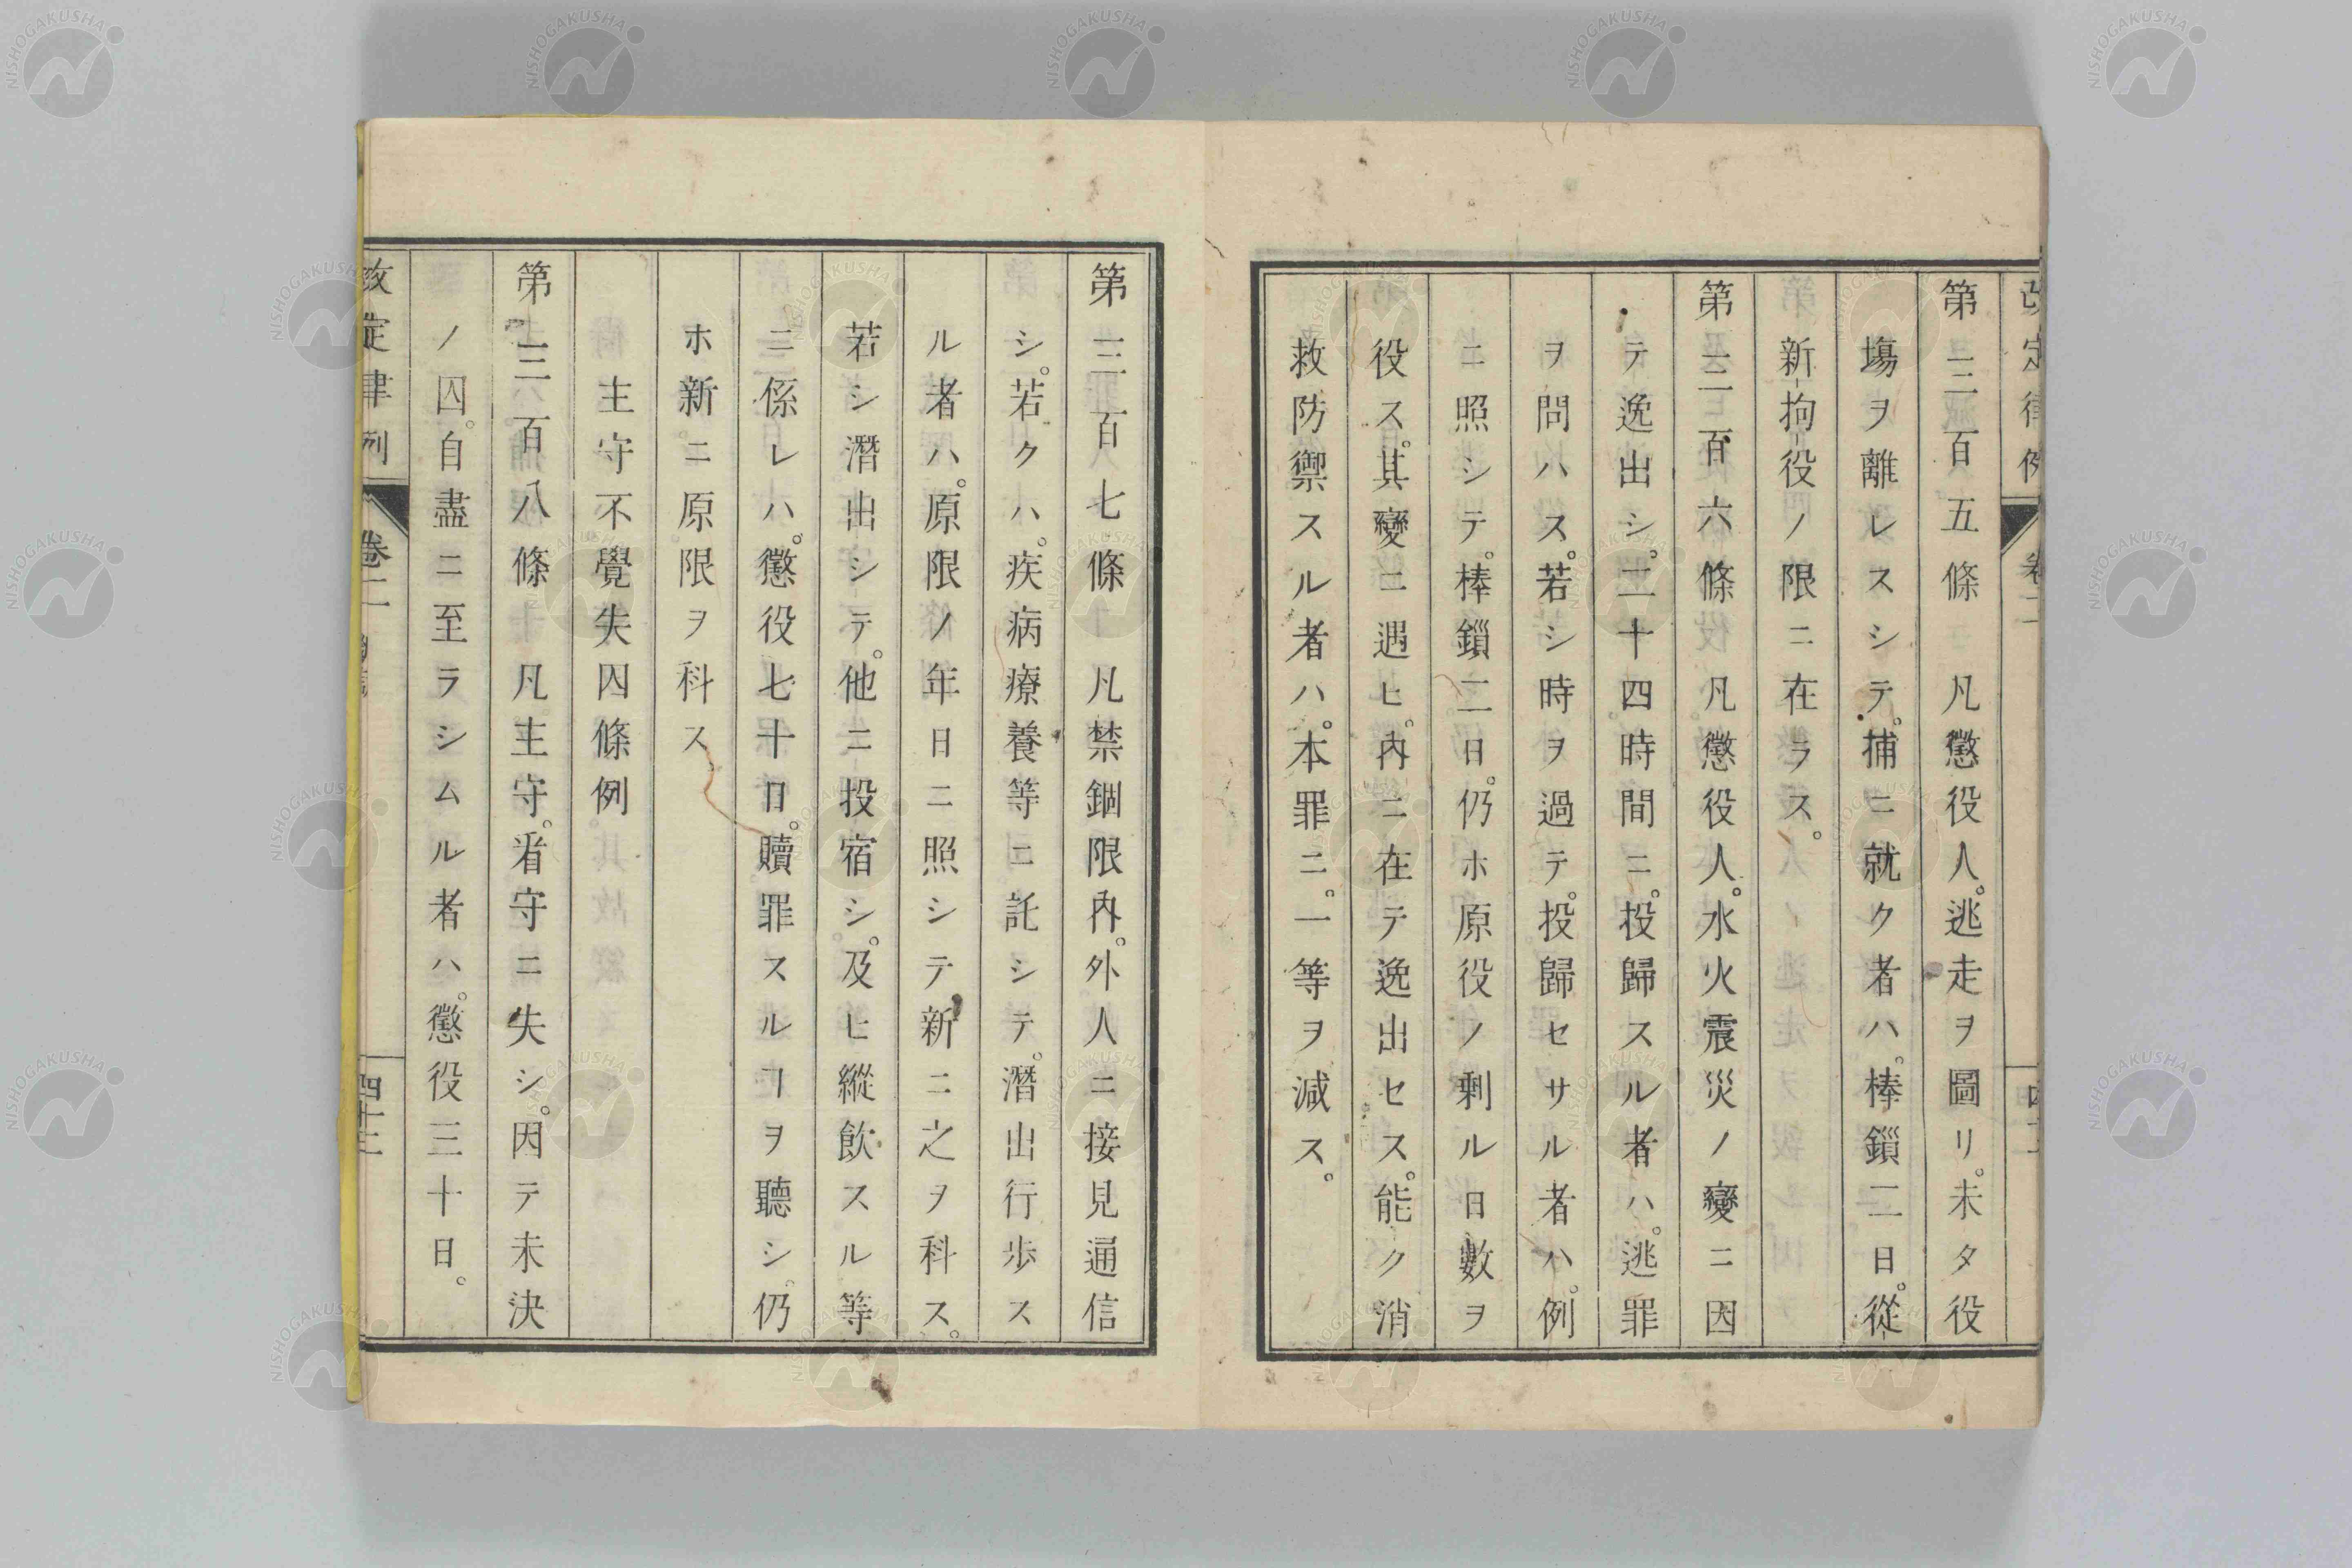 改定律例 卷二
第三百五條 凡懲役人。逃走ヲ圖リ。未タ役
塲ヲ離レスシテ。捕ニ就ク者ハ。棒鎖二日。從
新拘役ノ限ニ在ラス。
第三百六條 凡懲役人。水火震災ノ變ニ因
テ逸出シ。二十四時間ニ。投歸スル者ハ。逃罪
ヲ問ハス。若シ時ヲ過テ。投歸セサル者ハ。例
ニ照シテ。棒鎖二日。仍ホ原役ノ剩ル日數ヲ
役ス。其變ニ遇ヒ。內ニ在テ逸出セス。能ク消
救防禦スル者ハ。本罪ニ。一等ヲ減ス。
第三百七條 凡禁錮限內。外人ニ接見通信
シ。若クハ。疾病療養等ニ託シテ。潛出行歩ス
ル者ハ。原限ノ年日ニ照シテ新ニ之ヲ科ス。
若シ潛出シテ。他ニ投宿シ。及ヒ縱飮スル等
ニ係レハ。懲役七十日。贖罪スルヿヲ聽シ。仍
ホ新ニ原限ヲ科ス
主守不覺失囚條例
第三百八條 凡主守。看守ニ失シ。因テ未決
ノ囚。自盡ニ至ラシムル者ハ。懲役三十日。
改定律例 卷二 四十二
NISHOGAKUSHA